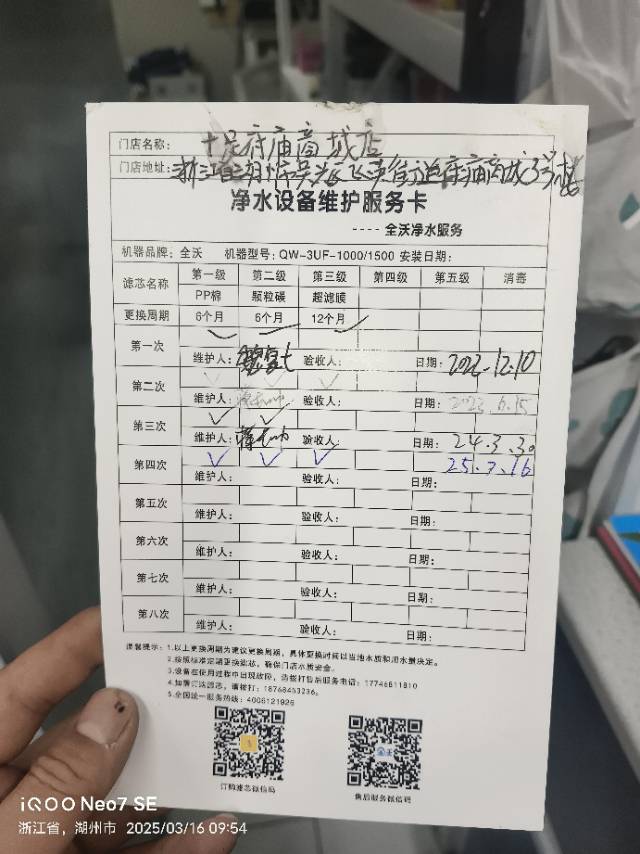 门店名称： 十足府庙商城店
门店地址： 府庙商城3号楼
净水设备维护服务卡
---- 全沃净水服务
机器品牌：全沃 机器型号：QW-3UF-1000/1500 安装日期：
滤芯名称 第一级 第二级 第三级 第四级 第五级 消毒
PP棉 颗粒碳 超滤膜
更换周期 6个月 6个月 12个月
第一次
维护人： 验收人： 日期：2022.12.10
第二次
维护人： 验收人： 日期：2023.6.15
第三次
维护人： 验收人： 日期：24.3.30
第四次 25.7.16
维护人： 验收人： 日期：
第五次
维护人： 验收人： 日期：
第六次
维护人： 验收人： 日期：
第七次
维护人： 验收人： 日期：
第八次
维护人： 验收人： 日期：
温馨提示：1.以上更换周期为建议更换周期，具体更换时间以当地水质和用水量决定。
2.按照标准定期更换滤芯，确保门店水质安全。
3.设备在使用过程中出现故障，请拨打售后服务电话：17746811810
4.如需订购滤芯，请拨打：18768453236。
5.全国统一服务热线：4006121926
订购滤芯微信码 售后服务微信码
iQOO Neo7 SE
浙江省，湖州市 2025/03/16 09:54